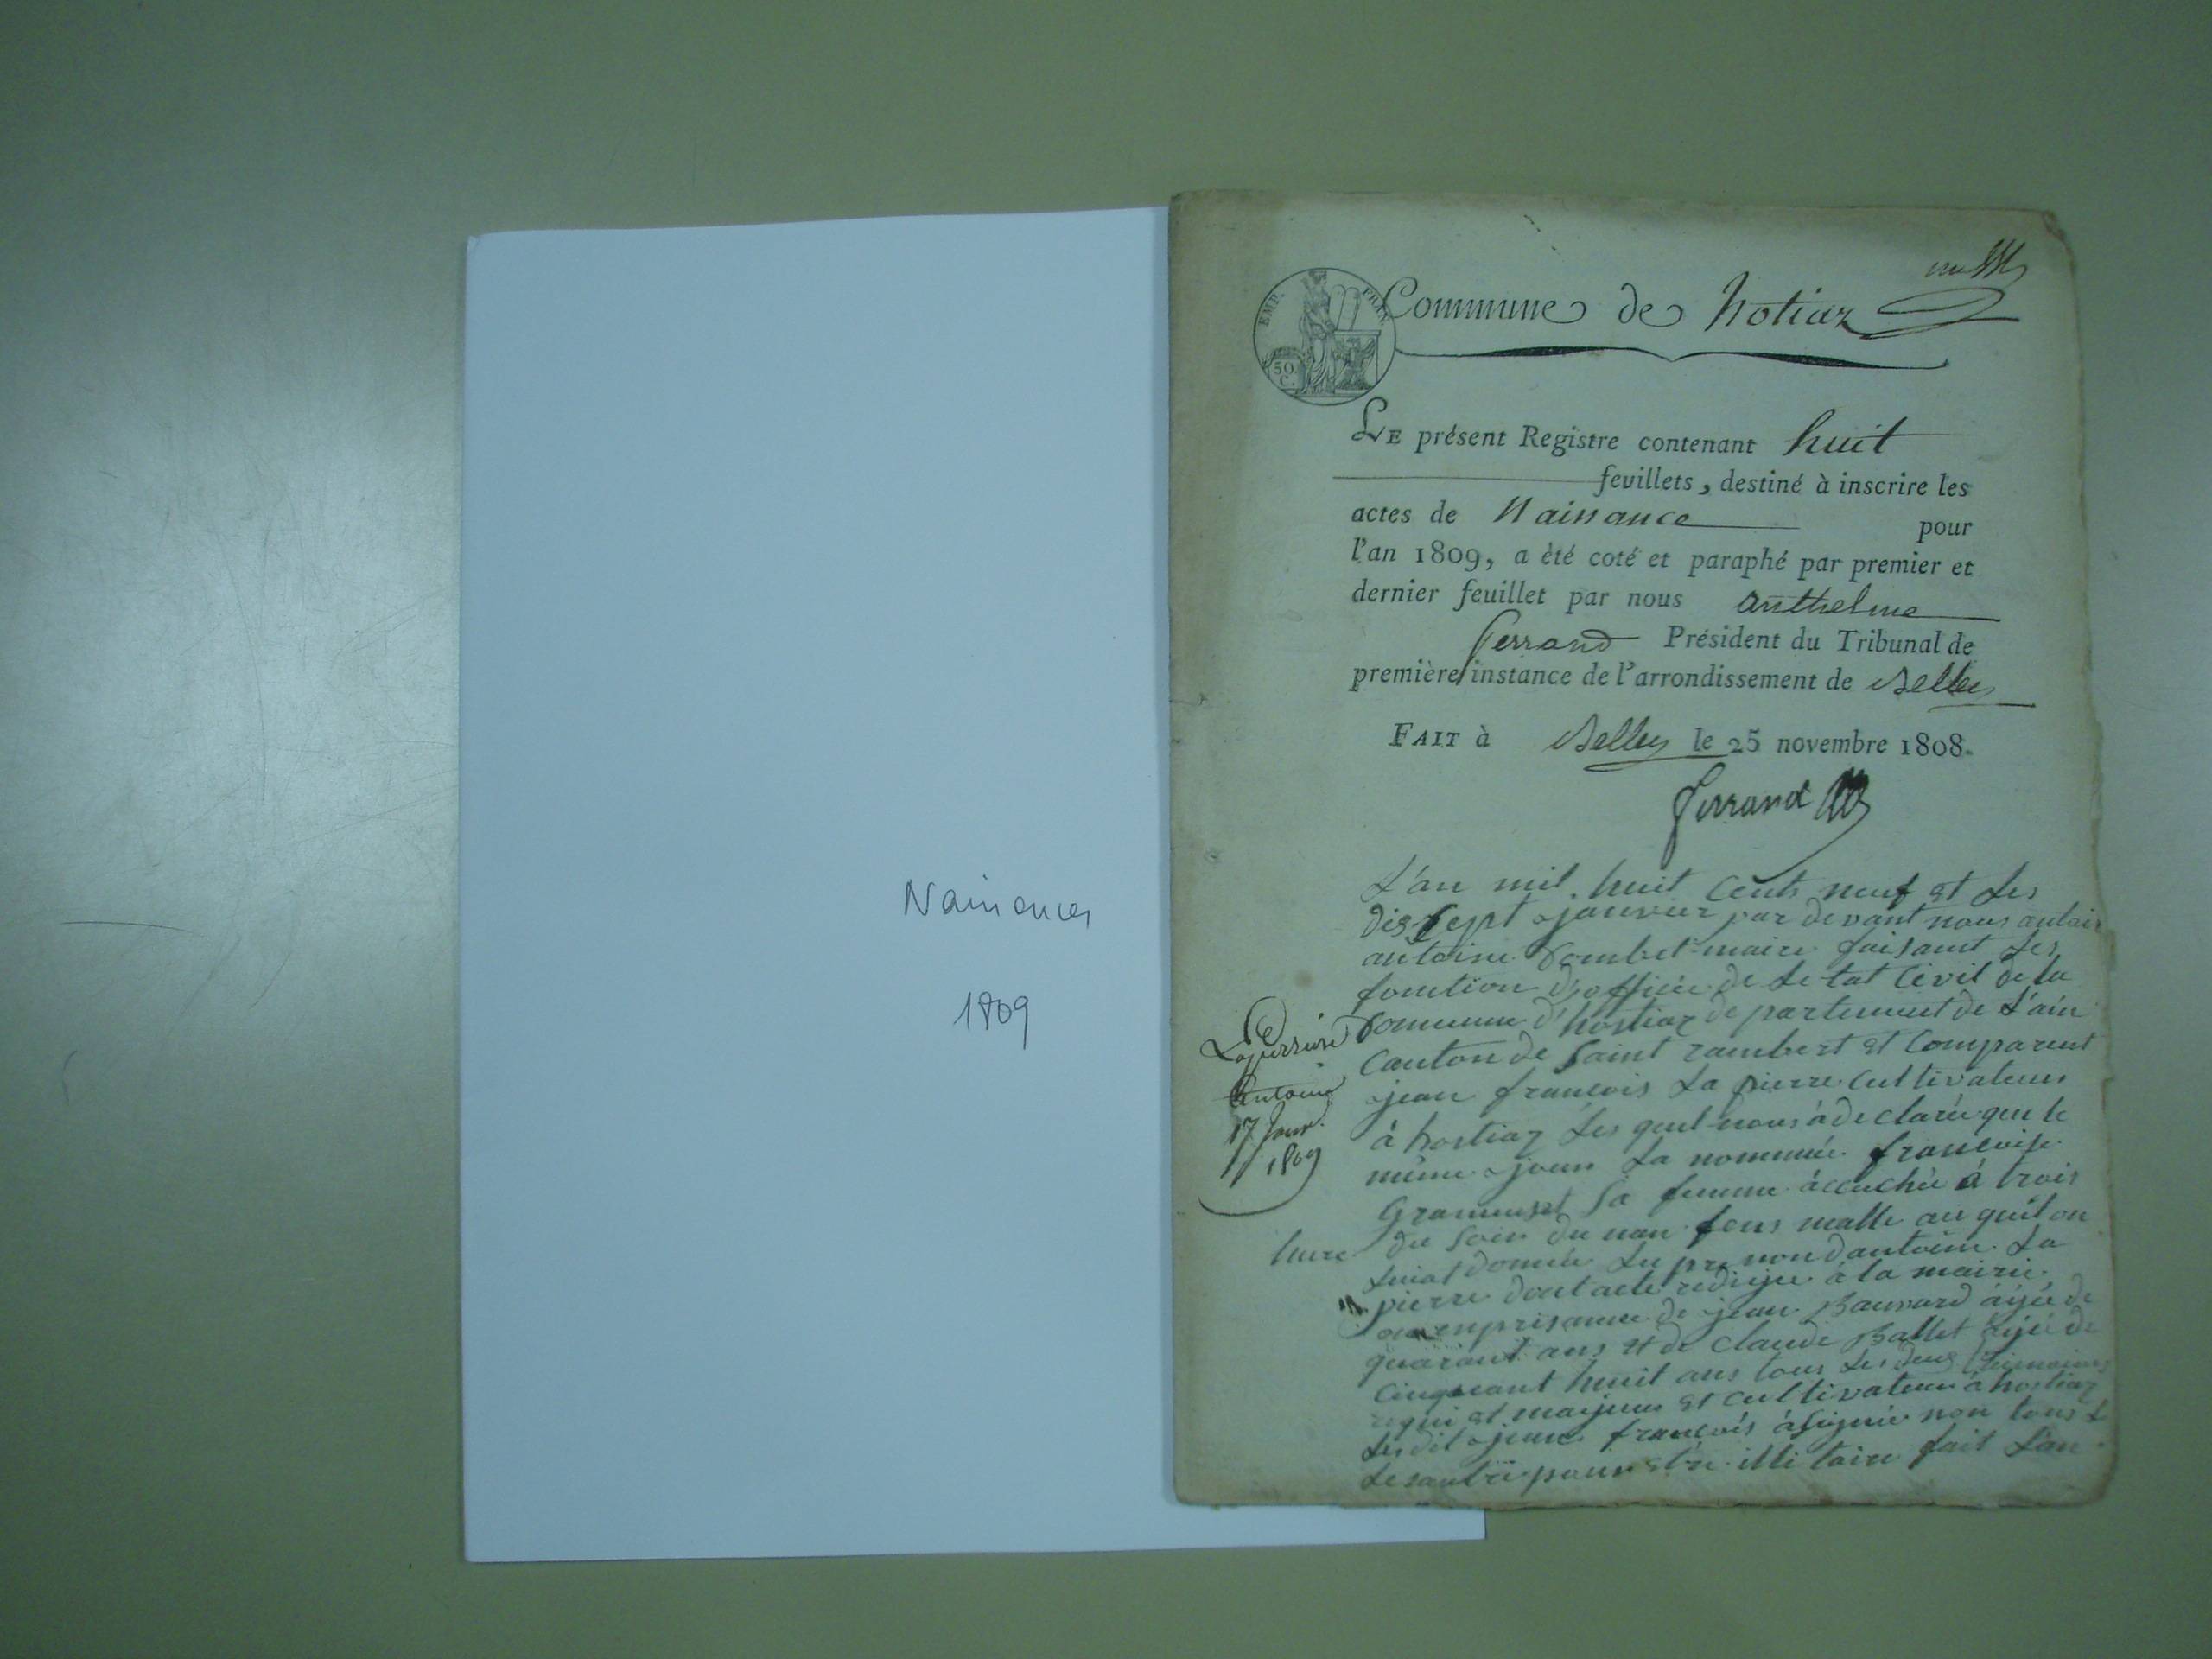 Naissances
1809
EMP. FRAN.
50
C.
Commune de hotiaz
LE présent Registre contenant huit
feuillets, destiné à inscrire les
actes de Naissance pour
l'an 1809, a été coté et paraphé par premier et
dernier feuillet par nous anthelme
ferrand Président du Tribunal de
première instance de l'arrondissement de Belley
FAIT à Belley le 25 novembre 1808.
ferrand
L'an mil huit cents neuf et les
dis sept janvier par devant nous
antoine maire faisant les
fonction de letat Civil de la
Commune d'hostiaz departement de L'ain
Canton de saint rambert et Comparent
jean francois La pierre cultivateur
à hostiaz Les quel nous à declarée que le
même jour La nommée francoise
sa femme accuchée à trois
heure du soir malle au quel on
Luiat donnée Le pre non dantoine La
pierre dont acte redijee à la mairie
de jean agée de
quarant ans et de claude Ballet agée de
Cinquant huit ans tous Les deux
majeur et cultivateur à hostiaz
Les dit jean francois à signée non tous
Les autre pour etre illitaire fait L'an
Lapierre
Antoine
17 Janv.
1809